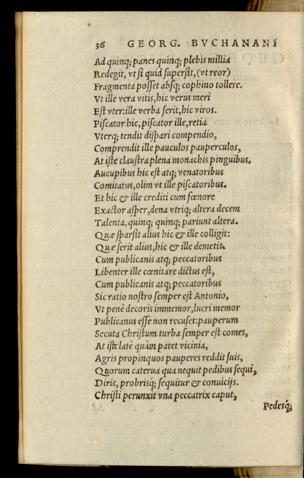 36 GEORG. BVCHANANI
Ad quinq; panes quinq; plebis millia
Redegit, vt si quid superfit, (vt reor)
Fragmenta posset absq; cophino tollere.
Vt ille vera vitis, hic verus meri
Est vter: ille verba serit, hic viros.
Piscator hic, piscator ille, retia
Vterq; tendit dispari compendio,
Comprendit ille pauculos pauperculos,
At iste claustra plena monachis pinguibus.
Aucupibus hic est atq; venatoribus
Comitatus, olim vt ille piscatoribus.
Et hic & ille crediti cum fœnore
Exactor asper, dena vtriq; altera decem
Talenta, quinq; quinq; pariunt altera.
Quæ sparsit alius hic & ille colligit:
Quæ serit alius, hic & ille demetit.
Cum publicanis atq; peccatoribus
Libenter ille cœnitare dictus est,
Cum publicanis atq; peccatoribus
Sic ratio nostro semper est Antonio,
Vt penè decoris immemor, lucri memor
Publicanus esse non recuset: pauperum
Secuta Christum turba semper est comes,
At iste latè quàm patet vicinia,
Agris propinquos pauperes reddit suis,
Quorum caterua qua nequit pedibus sequi,
Diris, probrisq; sequitur & conuicijs.
Christi perunxit vna peccatrix caput,
Pedesq;